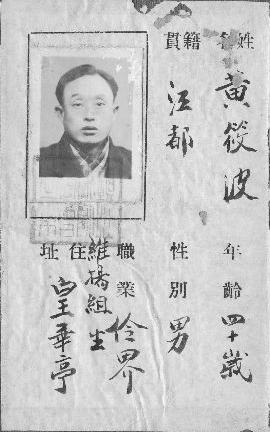 姓名 黃筱波
年齡 四十歲
籍貫 江都
性別 男
職業 伶界
維揚組生
住址 皇華亭